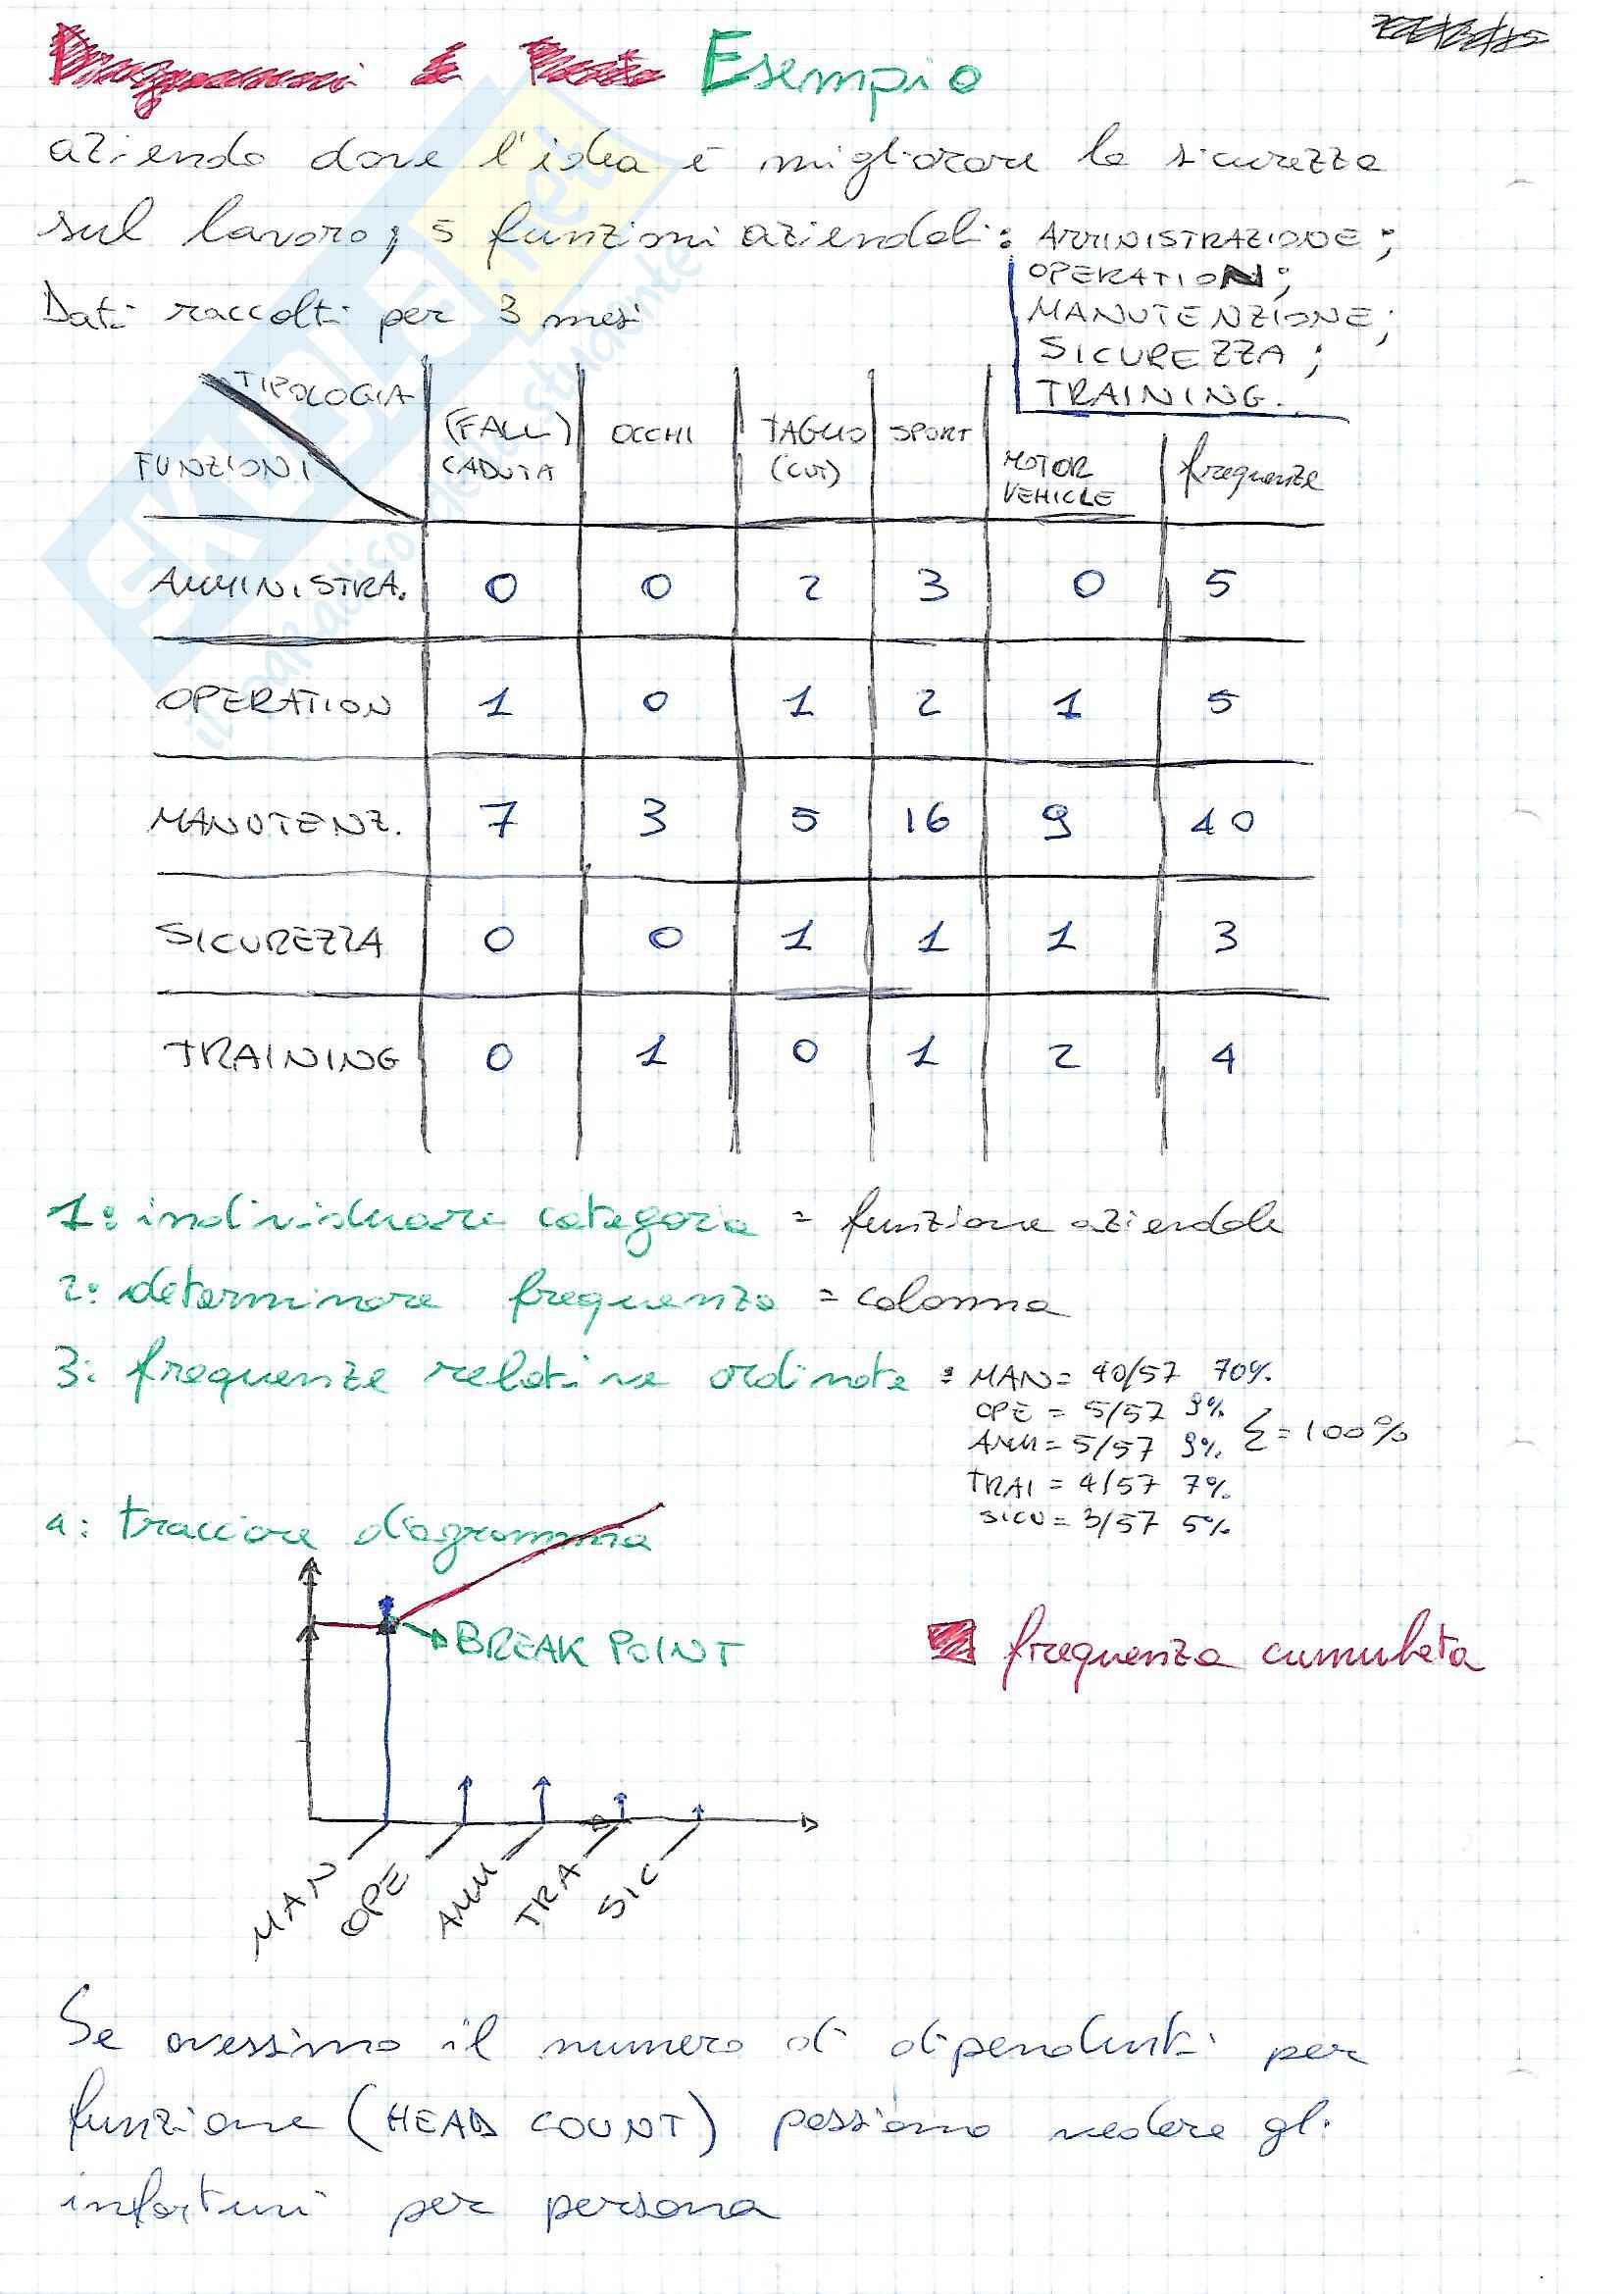 Esempio
azienda dove l'idea è migliorare la sicurezza
sul lavoro; 5 funzioni aziendali: AMMINISTRAZIONE;
OPERATION;
Dati raccolti per 3 mesi
MANUTENZIONE;
SICUREZZA;
TRAINING.
TIPOLOGIA
FUNZIONI
(FALL) CADUTA OCCHI TAGLIO (CUT) SPORT MOTOR VEHICLE frequenze
AMMINISTRA. 0 0 2 3 0 5
OPERATION 1 0 1 2 1 5
MANUTENZ. 7 3 5 16 9 40
SICUREZZA 0 0 1 1 1 3
TRAINING 0 1 0 1 2 4
1: individuare categoria = funzione aziendale
2: determinare frequenza = colonna
3: frequenze relative ordinate : MAN = 40/57 70%
OPE = 5/57 9%
AMM = 5/57 9% Σ = 100%
TRAI = 4/57 7%
SICU = 3/57 5%
4: tracciare diagramma
BREAK POINT
frequenza cumulata
MAN OPE AMM TRA SIC
Se avessimo il numero di dipendenti per
funzione (HEAD COUNT) possiamo vedere gli
infortuni per persona